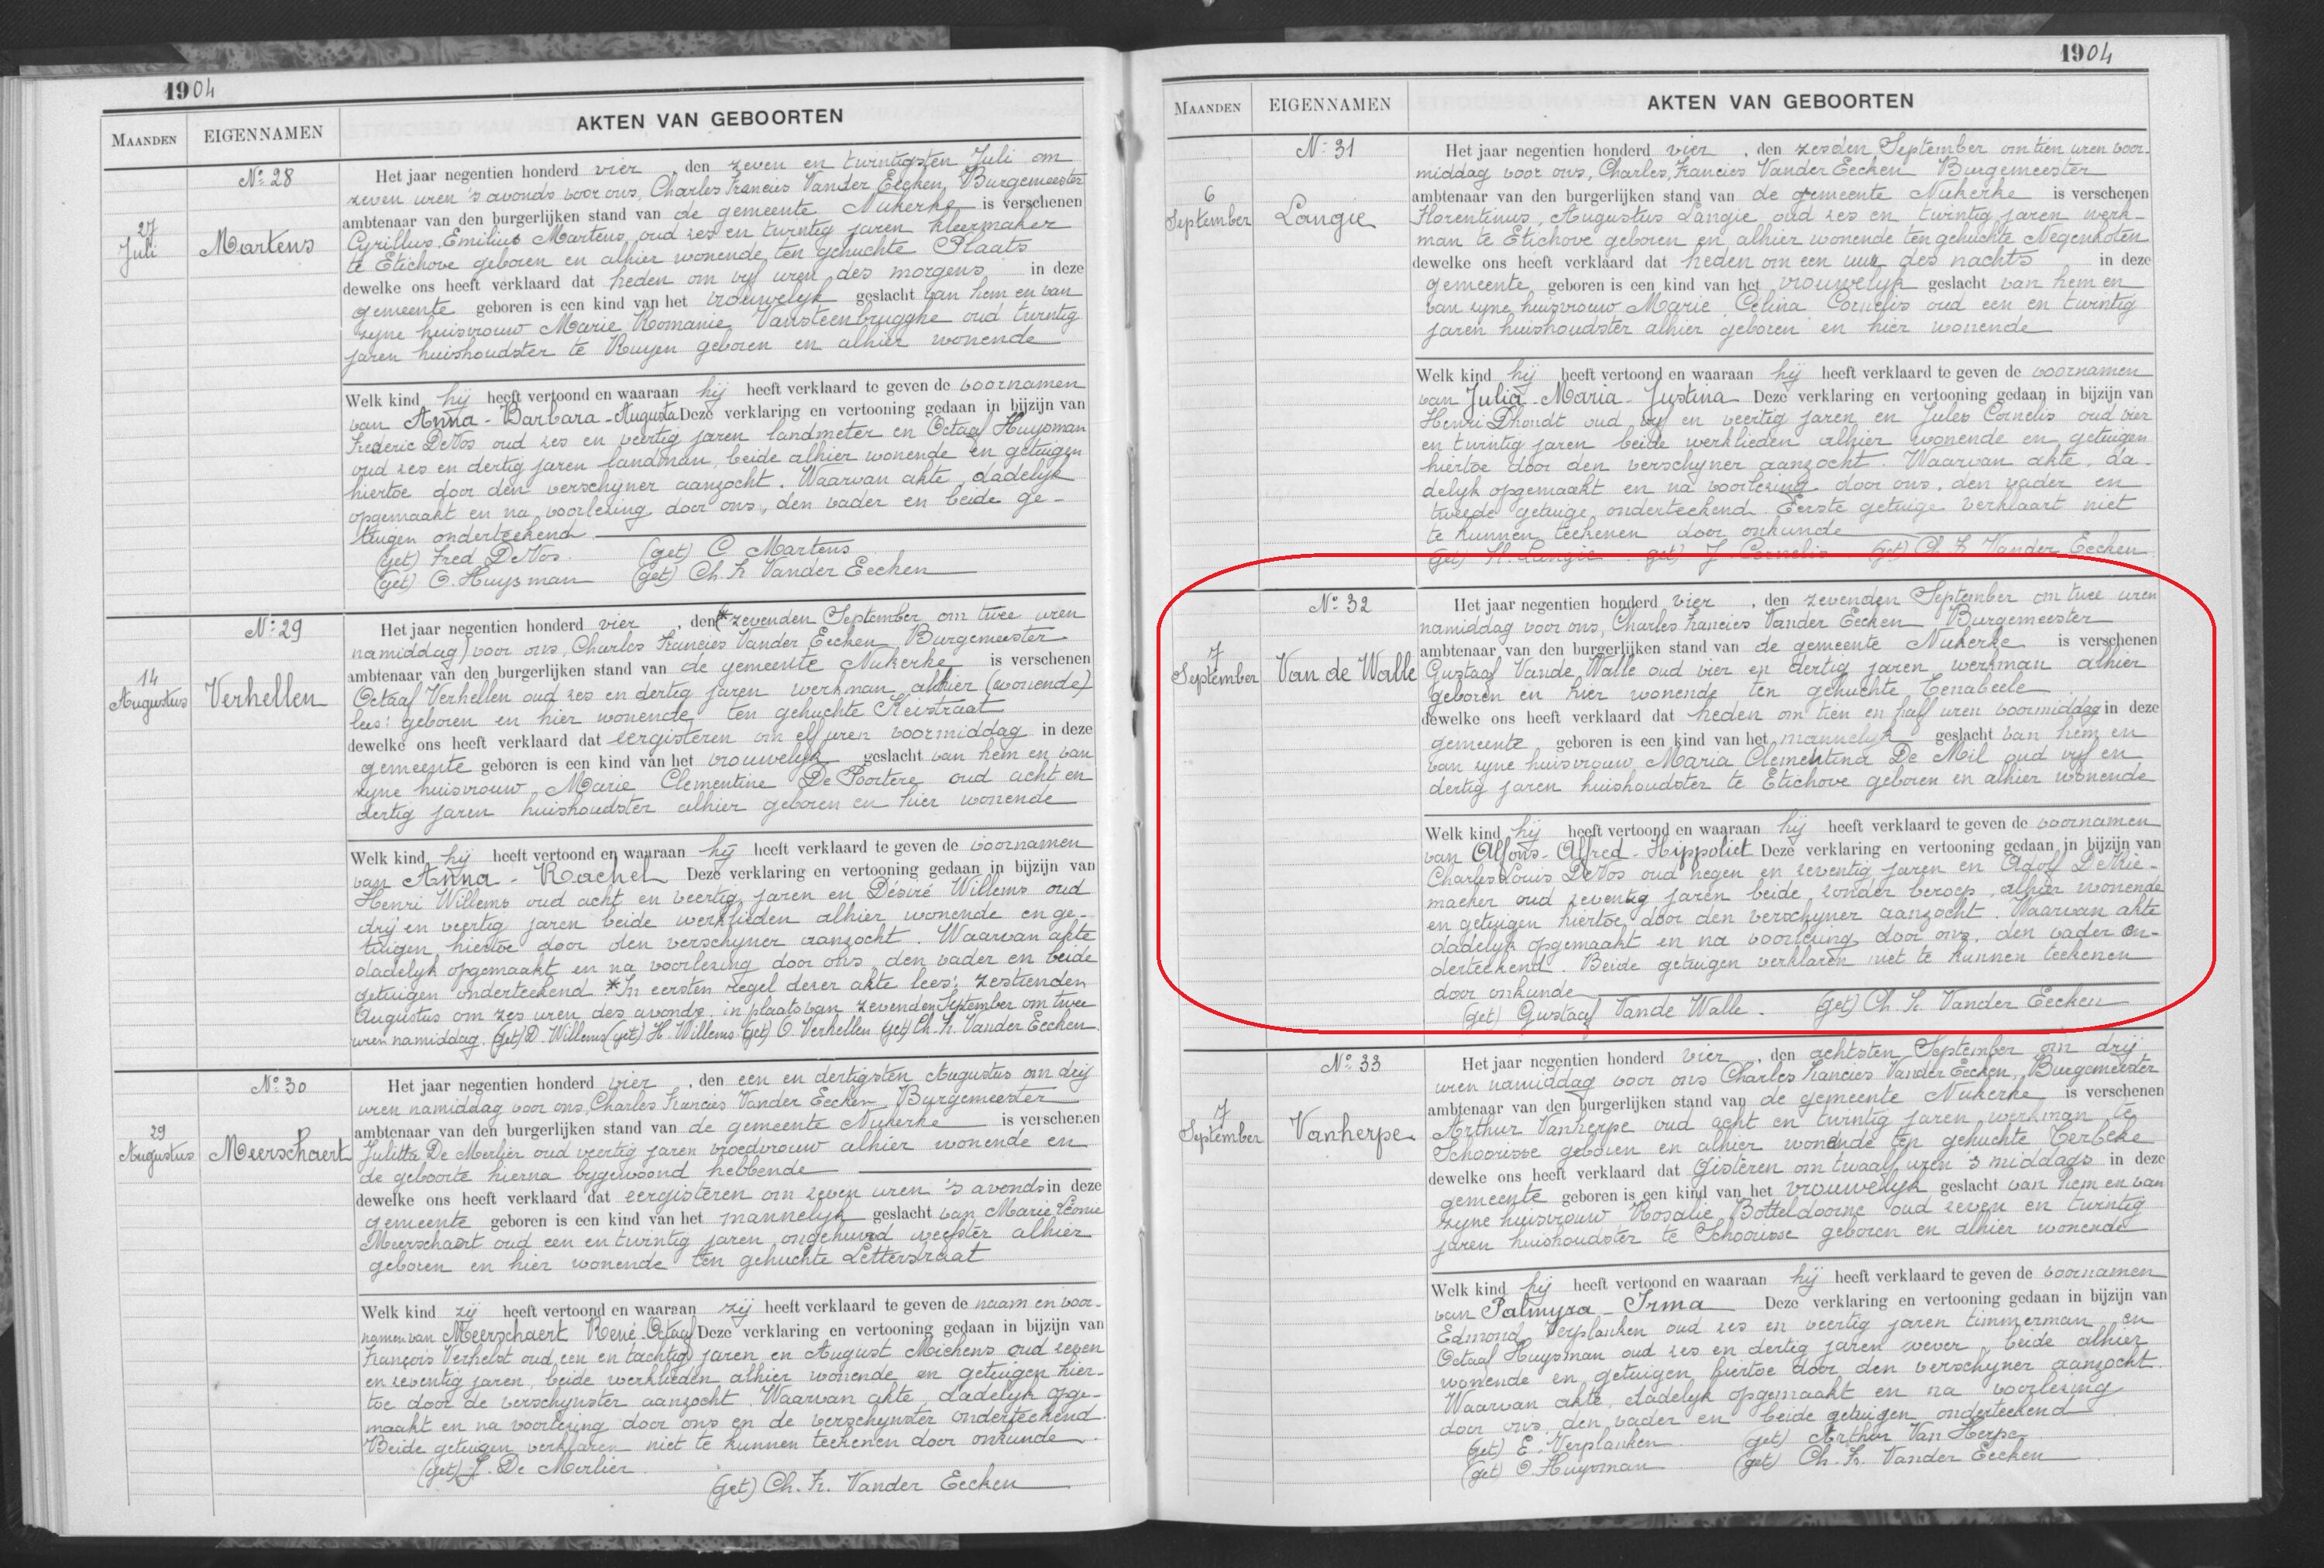 1904
MAANDEN
EIGENNAMEN
AKTEN VAN GEBOORTEN
27
Juli
Nº 28
Martens
Het jaar negentien honderd vier, den zeven en twintigsten Juli om
zeven uren 's avonds voor ons, Charles Francies Vander Eecken, Burgemeester
ambtenaar van den burgerlijken stand van de gemeente Nukerke is verschenen
Cyrillus, Emilius Martens, oud zes en twintig jaren kleermaker
te Etichove geboren en alhier wonende ten gehuchte Plaats
dewelke ons heeft verklaard dat heden om vyf uren des morgens in deze
gemeente geboren is een kind van het vrouwelyk geslacht van hem en van
zyne huisvrouw Marie Romanie Vansteenbrugghe oud twintig
jaren huishoudster te Ruyen geboren en alhier wonende
Welk kind hij heeft vertoond en waaraan hij heeft verklaard te geven de voornamen
van Anna - Barbara - Augusta Deze verklaring en vertooning gedaan in bijzijn van
Frederic De Vos oud zes en veertig jaren landmeter en Octaaf Huysman
oud zes en dertig jaren landman, beide alhier wonende en getuigen
hiertoe door den verschyner aanzocht. Waarvan akte, dadelyk
opgemaakt en na voorlezing door ons, den vader en beide ge-
tuigen onderteekend
(get) Fred DeVos. (get) C Martens
(get) O. Huysman (get) Ch. Fr Vander Eecken
14
Augustus
Nº 29
Verhellen
Het jaar negentien honderd vier, den (* zevenden September om twee uren
namiddag) voor ons, Charles Francies Vander Eecken Burgemeester
ambtenaar van den burgerlijken stand van de gemeente Nukerke is verschenen
Octaaf Verhellen oud zes en dertig jaren werkman alhier (wonende)
lees: geboren en hier wonende ten gehuchte Reistraat
dewelke ons heeft verklaard dat eergisteren om elf uren voormiddag in deze
gemeente geboren is een kind van het vrouwelyk geslacht van hem en van
zyne huisvrouw Marie Clementine De Poortere oud acht en
dertig jaren huishoudster alhier geboren en hier wonende
Welk kind hij heeft vertoond en waaraan hij heeft verklaard te geven de voornamen
van Anna - Rachel Deze verklaring en vertooning gedaan in bijzijn van
Henri Willems oud acht en veertig jaren en Désiré Willems oud
drij en veertig jaren beide werklieden alhier wonende en ge-
tuigen hiertoe door den verschyner aanzocht. Waarvan akte
dadelyk opgemaakt en na voorlezing door ons, den vader en beide
getuigen onderteekend *In eersten regel dezer akte lees: zestienden
Augustus om zes uren des avonds, in plaats van zevenden September om twee
uren namiddag. (get) D. Willems (get) H. Willems (get) O. Verhellen (get) Ch. Fr. Vander Eecken
29
Augustus
Nº 30
Meerschaert
Het jaar negentien honderd vier, den een en dertigsten Augustus om drij
uren namiddag voor ons, Charles Francies Vander Eecken, Burgemeester
ambtenaar van den burgerlijken stand van de gemeente Nukerke is verschenen
Julitta De Merlier oud veertig jaren vroedvrouw alhier wonende en
de geboorte hierna bygewoond hebbende
dewelke ons heeft verklaard dat eergisteren om zeven uren 's avonds in deze
gemeente geboren is een kind van het mannelyk geslacht van Marie Léonie
Meerschaert oud een en twintig jaren ongehuwd weefster alhier
geboren en hier wonende ten gehuchte Letterstraat
Welk kind zij heeft vertoond en waaraan zij heeft verklaard te geven de naam en voor-
namen van Meerschaert René Octaaf Deze verklaring en vertooning gedaan in bijzijn van
François Verhelst oud een en tachtig jaren en August Michens oud zeven
en zeventig jaren, beide werklieden alhier wonende en getuigen hier-
toe door de verschynster aanzocht. Waarvan akte, dadelyk opge-
maakt en na voorlezing door ons en de verschynster onderteekend.
Beide getuigen verklaren niet te kunnen teekenen door onkunde
(get) J. De Merlier
(get) Ch. Fr. Vander Eecken
1904
MAANDEN
EIGENNAMEN
AKTEN VAN GEBOORTEN
6
September
Nº 31
Langie
Het jaar negentien honderd vier, den zesden September om tien uren voor-
middag voor ons, Charles, Francies Vander Eecken Burgemeester
ambtenaar van den burgerlijken stand van de gemeente Nukerke is verschenen
Florentinus, Augustus Langie oud zes en twintig jaren werk-
man te Etichove geboren en alhier wonende ten gehuchte Negenhoten
dewelke ons heeft verklaard dat heden om een uur des nachts in deze
gemeente geboren is een kind van het vrouwelyk geslacht van hem en
van zyne huisvrouw Marie, Célina Cornelis oud een en twintig
jaren huishoudster alhier geboren en hier wonende
Welk kind hij heeft vertoond en waaraan hij heeft verklaard te geven de voornamen
van Julia - Maria - Justina Deze verklaring en vertooning gedaan in bijzijn van
Henri Dhondt oud vyf en veertig jaren en Jules Cornelis oud vier
en twintig jaren beide werklieden alhier wonende en getuigen
hiertoe door den verschyner aanzocht. Waarvan akte, da-
delyk opgemaakt en na voorlezing door ons, den vader en
tweede getuige onderteekend. Eerste getuige verklaart niet
te kunnen teekenen door onkunde
(get) Langie (get) J. Cornelis (get) Ch. Fr. Vander Eecken
7
September
Nº 32
Van de Walle
Het jaar negentien honderd vier, den zevenden September om twee uren
namiddag voor ons, Charles Francies Vander Eecken Burgemeester
ambtenaar van den burgerlijken stand van de gemeente Nukerke is verschenen
Gustaaf Vande Walle oud vier en dertig jaren werkman alhier
geboren en hier wonende ten gehuchte Tenabeele
dewelke ons heeft verklaard dat heden om tien en half uren voormiddag in deze
gemeente geboren is een kind van het mannelyk geslacht van hem en
van zyne huisvrouw Maria Clementina De Mil oud vyf en
dertig jaren huishoudster te Etichove geboren en alhier wonende
Welk kind hij heeft vertoond en waaraan hij heeft verklaard te geven de voornamen
van Alfons - Alfred - Hippoliet Deze verklaring en vertooning gedaan in bijzijn van
Charles Louis DeVos oud negen en zeventig jaren en Adolf DeRie-
maeker oud zeventig jaren beide zonder beroep, alhier wonende
en getuigen hiertoe door den verschyner aanzocht. Waarvan akte
dadelyk opgemaakt en na voorlezing door ons, den vader on-
derteekend. Beide getuigen verklaren niet te kunnen teekenen
door onkunde
(get) Gustaaf Vande Walle. (get) Ch. Fr. Vander Eecken
7
September
Nº 33
Vanherpe
Het jaar negentien honderd vier, den achtsten September om drij
uren namiddag voor ons Charles Francies Vander Eecken, Burgemeester
ambtenaar van den burgerlijken stand van de gemeente Nukerke is verschenen
Arthur Vanherpe oud acht en twintig jaren werkman te
Schoorisse geboren en alhier wonende ten gehuchte Terbeke
dewelke ons heeft verklaard dat gisteren om twaalf uren 's middags in deze
gemeente geboren is een kind van het vrouwelyk geslacht van hem en van
zyne huisvrouw Rosalie Botteldoorne oud zeven en twintig
jaren huishoudster te Schoorisse geboren en alhier wonende
Welk kind hij heeft vertoond en waaraan hij heeft verklaard te geven de voornamen
van Palmyra - Irma Deze verklaring en vertooning gedaan in bijzijn van
Edmond Verplanken oud zes en veertig jaren timmerman en
Octaaf Huysman oud zes en dertig jaren wever beide alhier
wonende en getuigen hiertoe door den verschyner aanzocht.
Waarvan akte, dadelyk opgemaakt en na voorlezing
door ons, den vader en beide getuigen onderteekend
(get) E. Verplanken (get) Arthur Van Herpe
(get) O. Huysman (get) Ch. Fr. Vander Eecken